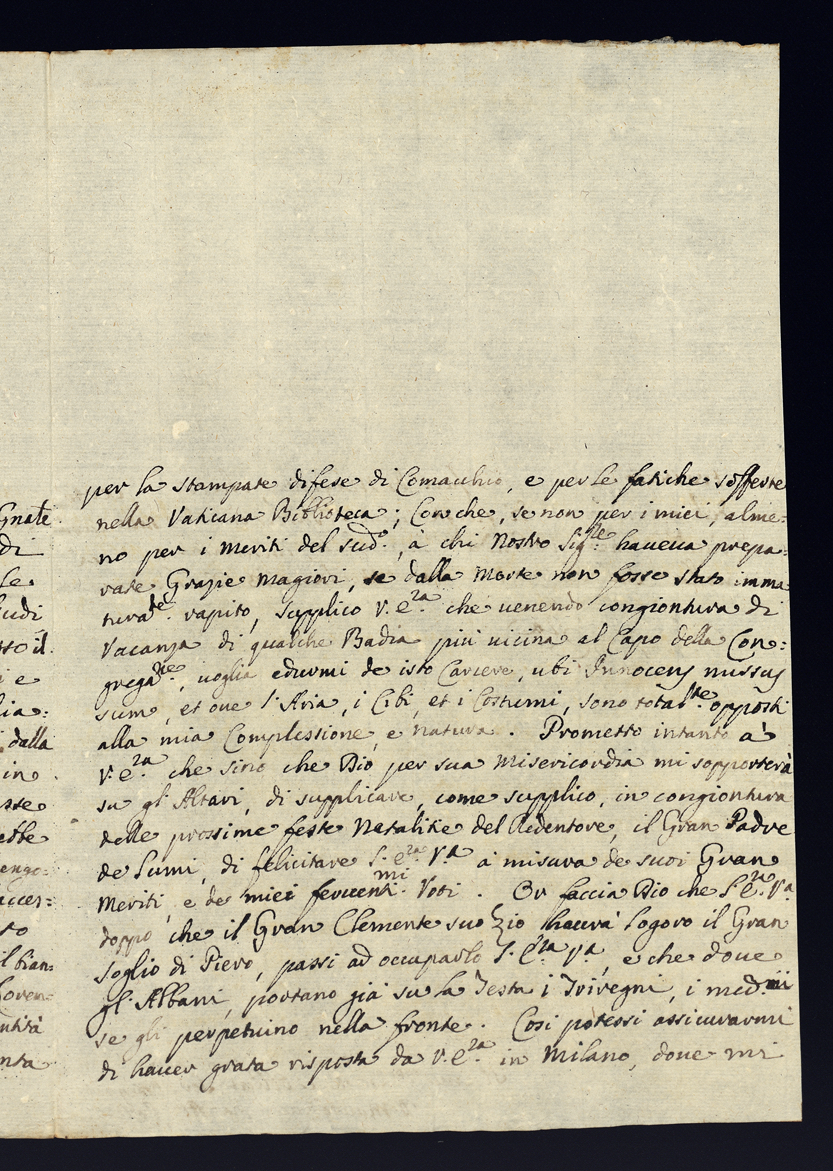 Gnate.
di
le
sudi
sso il
i e
lia:
dalla
in
asse
ebbe
engo:
accer:
to
il bian:
loven:
ntità
nta
per la stampate difese di Comacchio, e per le fatiche sofferte
nella Vaticana Biblioteca; Coro che, se non per i miei, alme:
no per i meriti del sud.º, à chi Nostro Sig.re haueua prepa:
rate Grazie magiori, se dalla Morte non fosse stato imma
tura.te rapito, supplico V. E.za che uenendo congiontura di
Vacanza di qualche Badia più uicina al Capo della Con:
grega.ne, uoglia edurmi de isto Carcere, ubi Innocens missus
sum, et oue l'Aria, i Cibi, et i Costumi, sono total.te opposti
alla mia Complessione, e natura. Prometto intanto à
V. E.za che sino che Dio per sua Misericordia mi sopporterà
su gl'Altari, di supplicare, come supplico, in congiontura
delle prossime feste Natalitie del Redentore, il Gran Padre
de Lumi, di felicitare S. E.za V.a à misura de suoi Gran
Meriti, e de miei feruenti.mi Voti. Or faccia Dio che S. E.za V.a
doppo che il Gran Clemente suo Zio haurà logoro il Gran
Soglio di Piero, passi ad occuparlo S. E.za V.a, e che doue
gl'Albani, portano già su la Testa i Trivegni, i med.mi
se gli perpetuino nella fronte. Cosi potessi assicurarmi
di hauer grata risposta da V. E.za in Milano, doue mi